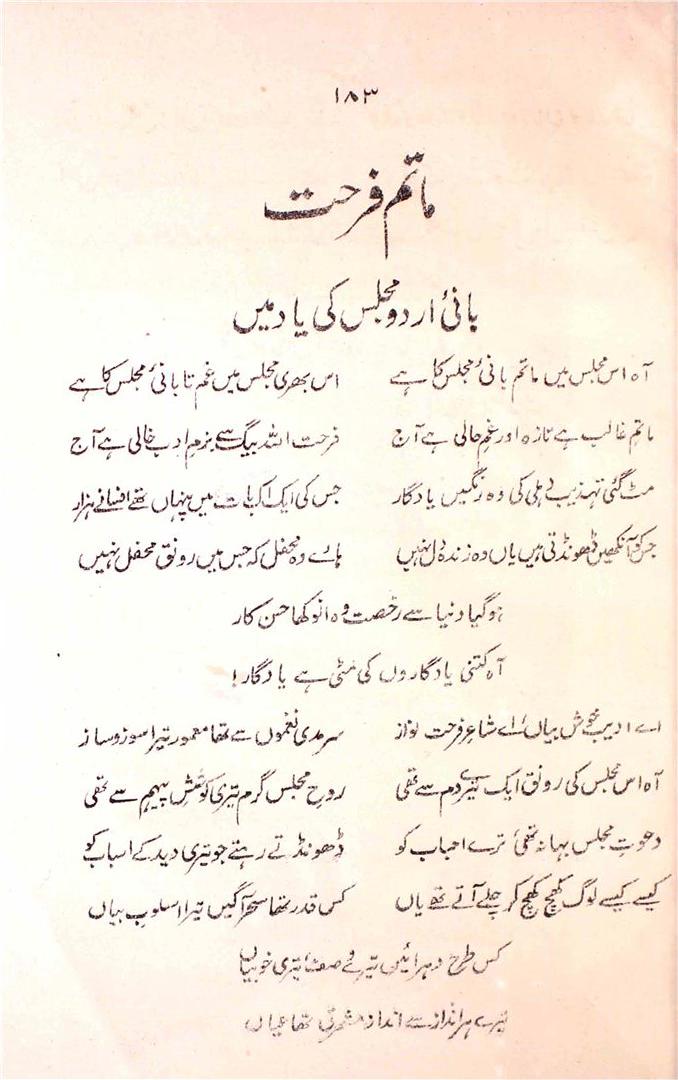 ۱۸۳
ماتم فرحت
بانیٔ اردو مجلس کی یاد میں
آہ اس مجلس میں ماتم بانیٔ مجلس کا ہے اس بھری مجلس میں غم تا بانیٔ مجلس کا ہے
ماتم غالب ہے تازہ اور غم حالی ہے آج فرحت اللہ بیگ سے بزم ادب خالی ہے آج
مٹ گئی تہذیب دہلی کی وہ رنگیں یادگار جس کی ایک اک بات میں پنہاں تھے افسانے ہزار
جس کو آنکھیں ڈھونڈتی ہیں یاں وہ زندہ دل نہیں ہائے وہ محفل کہ جس میں رونق محفل نہیں
ہو گیا دنیا سے رخصت وہ انوکھا حسن کار
آہ کتنی یادگاروں کی مٹی ہے یادگار!
اے ادیب خوش بیاں، اے شاعر فرحت نواز سرمدی نغموں سے تھا معمور تیرا سوز و ساز
آہ اس مجلس کی رونق ایک تیرے دم سے تھی روح مجلس گرم تیری کوشش پیہم سے تھی
دعوت مجلس بہانہ تھی ترے احباب کو ڈھونڈتے رہتے جو تیری دید کے اسباب کو
کیسے کیسے لوگ کھچ کھچ کر چلے آتے تھے یاں کس قدر تھا سحر آگیں تیرا اسلوب بیاں
کس طرح دہرائیں تیرے وصف تیری خوبیاں
تیرے ہر انداز سے انداز مشرقی تھا عیاں